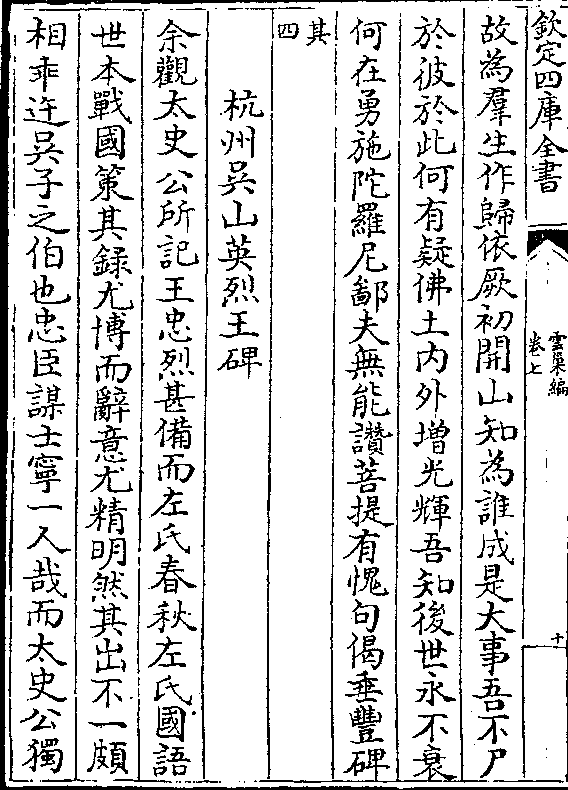 欽定四庫全書
雲巢編
卷七
十
故為羣生作歸依厥初開山知為誰成是大事吾不尸
於彼於此何有疑佛土內外增光輝吾知後世永不衰
何在勇施陀羅尼鄙夫無能讚菩提有愧句偈垂豐碑
其四
杭州吳山英烈王碑
余觀太史公所記王忠烈甚備而左氏春秋左氏國語
世本戰國策其録尤博而辭意尤精明然其出不一頗
相乖迕吳子之伯也忠臣謀士寧一人哉而太史公獨